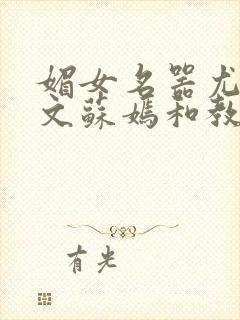 媚女名器尤
文蘇媽和教
有光